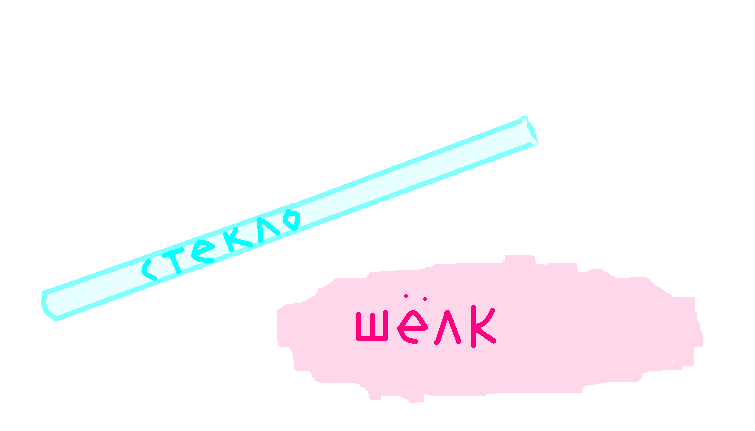 стекло
шёлк